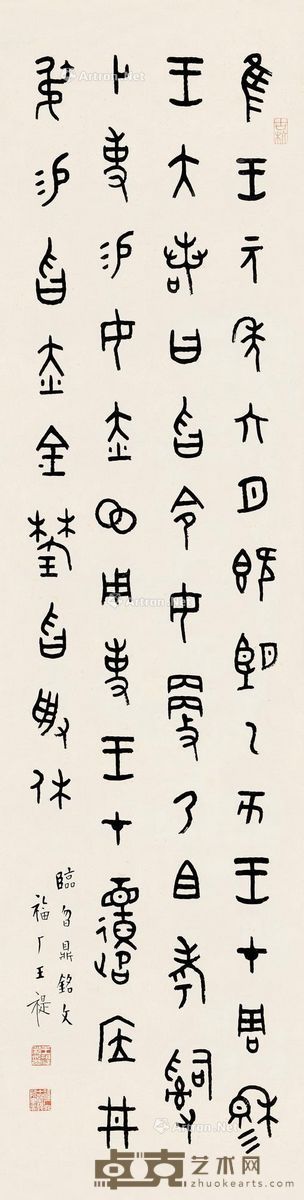 隹王元年六月既望乙亥王才周穆
王大若曰曶令女更乃且考𤔲
卜事易女赤用事王才井
叔易曶赤金曶受休
臨曶鼎銘文
福厂王禔
Artron.Net
Artron.Net
Artron.Net
卓克艺术网
www.zhuokearts.com